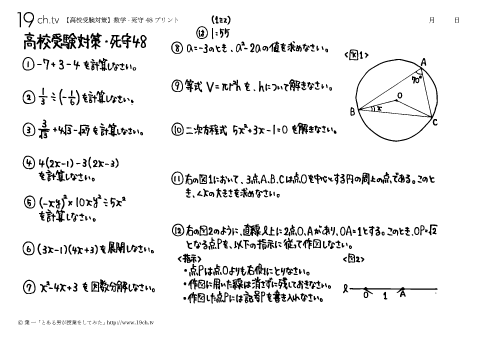 19ch.tv 【高校受験対策】数学-死守48プリント 月 日
高校受験対策・死守48
① -7+3-4 を計算しなさい。
② 1/3÷(-1/6) を計算しなさい。
③ 3/√3+4√3-√27 を計算しなさい。
④ 4(2x-1)-3(2x-3)
を計算しなさい。
⑤ (-xy)²×10xy²÷5x²
を計算しなさい。
⑥ (3x-1)(4x+3) を展開しなさい。
⑦ x²-4x+3 を因数分解しなさい。
⑧ a=-3のとき、a²-2aの値を求めなさい。
⑨ 等式 V=πr²h を、hについて解きなさい。
⑩ 二次方程式 5x²+3x-1=0 を解きなさい。
⑪ 右の図1において、3点A、B、Cは点Oを中心とする円の周上の点である。このと
き、∠xの大きさを求めなさい。
⑫ 右の図2のように、直線ℓ上に2点O、Aがあり、OA=1とする。このとき、OP=√2
となる点Pを、以下の指示に従って作図しなさい。
<指示>
・点Pは点Oよりも右側にとりなさい。
・作図に用いた線は消さずに残しておきなさい。
・作図した点Pには記号Pを書き入れなさい。
<図1>
A
70°
O
B
x
C
<図2>
ℓ O 1 A
© 第一「とある男が授業をしてみた」http://www.19ch.tv